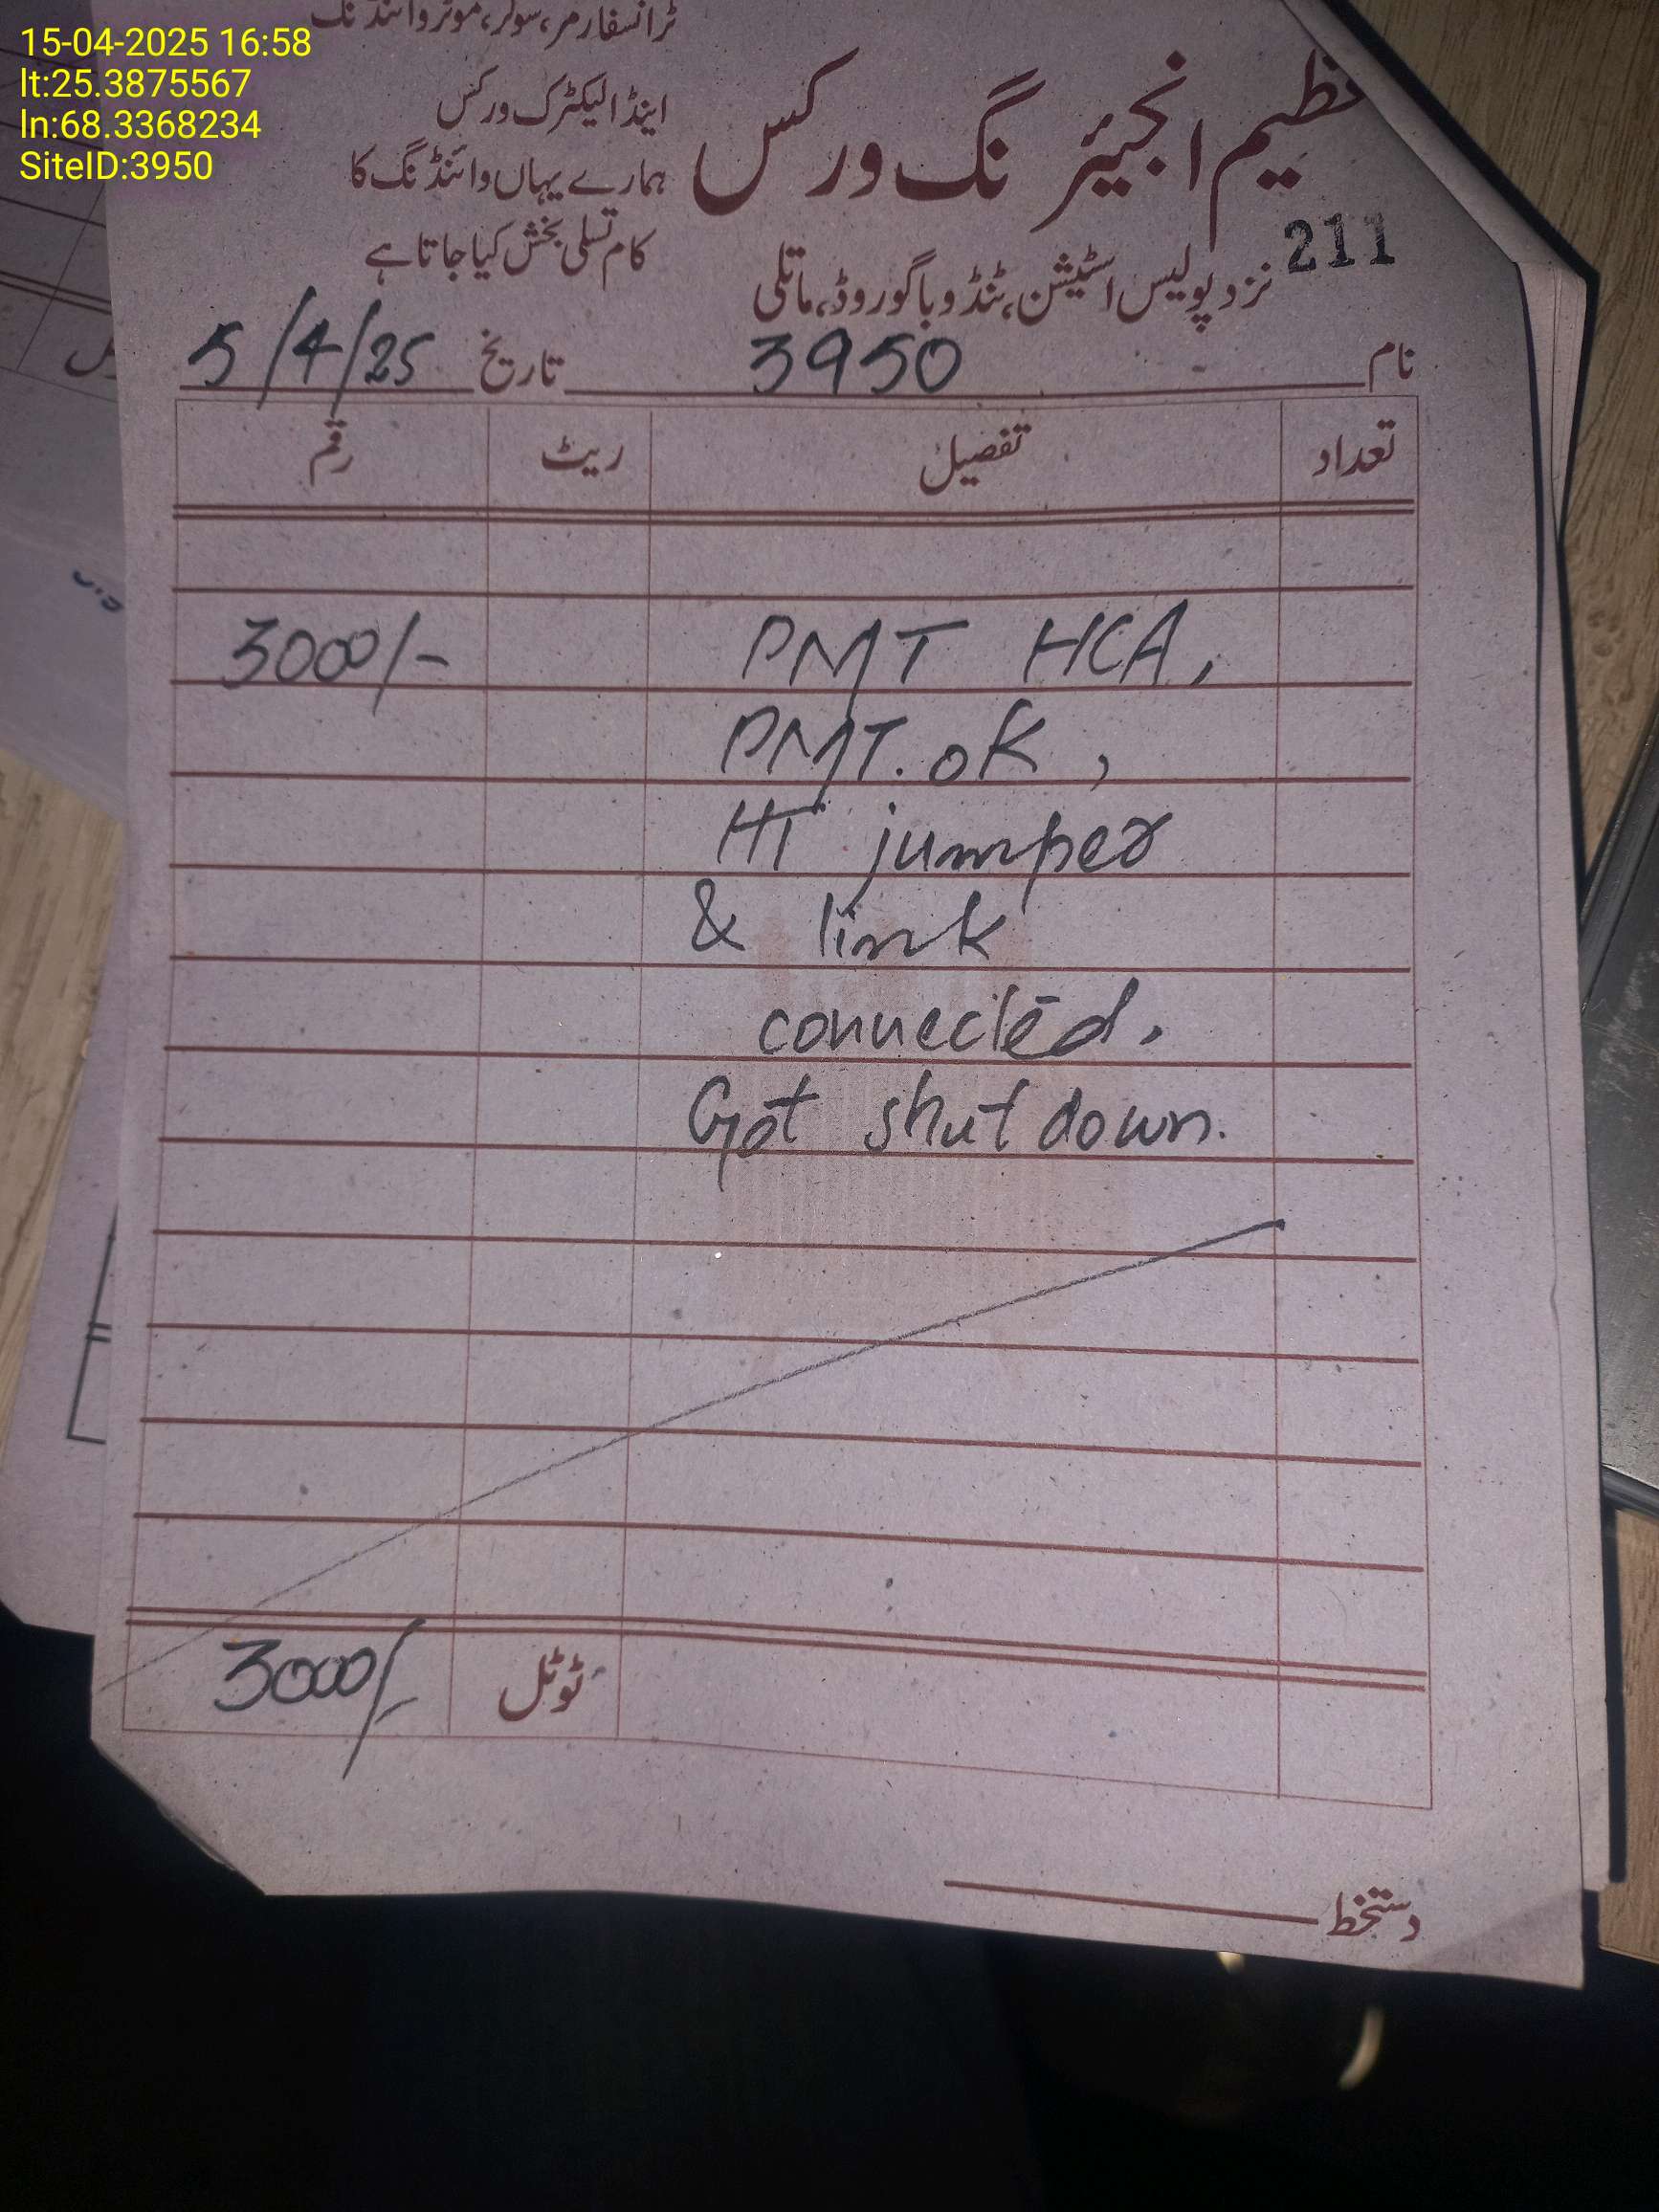 15-04-2025 16:58
lt:25.3875567
ln:68.3368234
SiteID:3950
ٹرانسفارمر، سولر، موٹر وائنڈنگ
اینڈ الیکٹرک ورکس
ہمارے یہاں وائنڈنگ کا
کام تسلی بخش کیا جاتا ہے
انجینئرنگ ورکس
211
نزد پولیس اسٹیشن، ٹنڈو باگو روڈ، ماتلی
نام 3950 تاریخ 5/4/25
تعداد تفصیل ریٹ رقم
PMT HCA, 3000/-
PMT. oK,
HT jumper
& link
connected.
Got shut down.
ٹوٹل 3000/-
دستخط